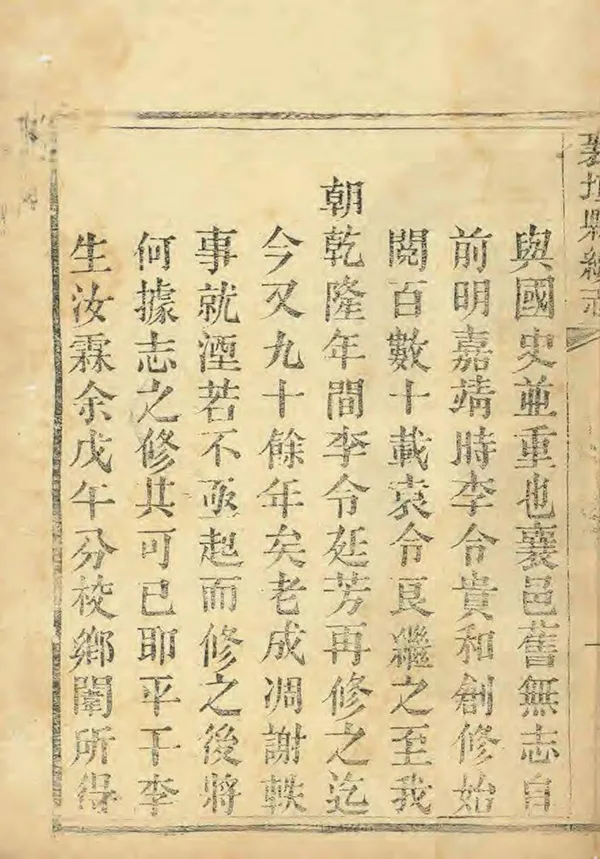 襄垣縣續志
與國史並重也襄邑舊無志自
前明嘉靖時李令貴和創修始
閱百數十載袁令良繼之至我
朝乾隆年間李令廷芳再修之迄
今又九十餘年矣老成凋謝軼
事就湮若不亟起而修之後將
何據志之修其可已耶平干李
生汝霖余戊午分校鄉闈所得